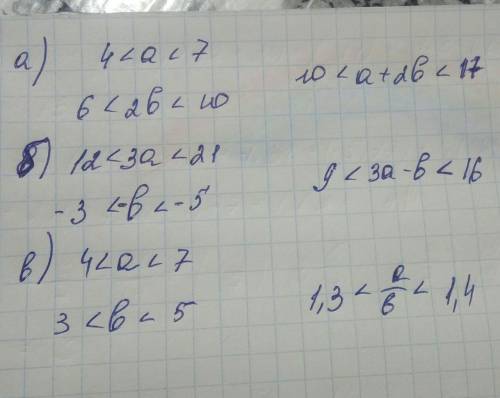 а) 4 < a < 7
6 < 2b < 10
10 < a + 2b < 17
б) 12 < 3a < 21
-3 < -b < -5
9 < 3a - b < 16
в) 4 < a < 7
3 < b < 5
1,3 < a/b < 1,4